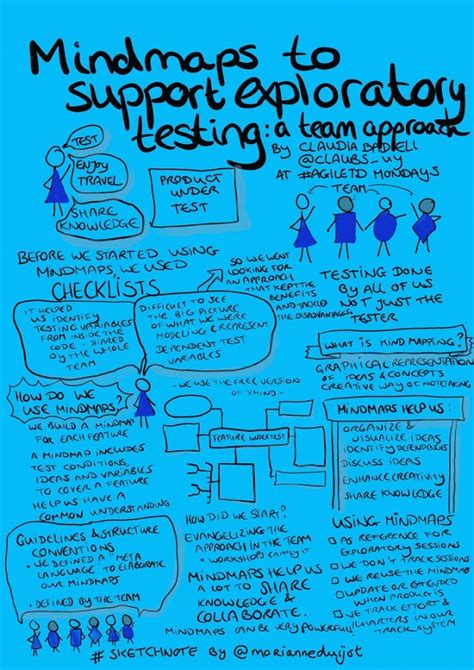 Mindmaps to
support exploratory
testing: a team approach
BY CLAUDIA BADELL
@CLAUBS_UY
AT #AGILETD MONDAYS
TEST
ENJOY
TRAVEL
SHARE
KNOWLEDGE
PRODUCT
UNDER
TEST
TEAM
BEFORE WE STARTED USING
MINDMAPS, WE USED
CHECKLISTS
SO WE WENT
LOOKING FOR
AN APPROACH
THAT KEPT THE
BENEFITS
AND TACKLED
THE DISADVANTAGES.
TESTING DONE
BY ALL OF US
NOT JUST THE
TESTER
IT HELPED
US IDENTIFY
TESTING VARIABLES
FROM INSIDE THE
CODE - SHARED
BY THE WHOLE
TEAM
DIFFICULT TO SEE
THE BIG PICTURE
OF WHAT WE WERE
MODELING & REPRESENT
DEPENDENT TEST
VARIABLES
WHAT IS MIND MAPPING?
GRAPHICAL REPRESENTATION
OF IDEAS & CONCEPTS
CREATIVE WAY OF NOTETAKING
HOW DO WE
USE MINDMAPS?
WE BUILD A MINDMAP
FOR EACH FEATURE
A MINDMAP INCLUDES
TEST CONDITIONS,
IDEAS AND VARIABLES
TO COVER A FEATURE
HELP US HAVE A
COMMON UNDERSTANDING
- WE USE THE FREE VERSION
OF XMIND -
FEATURE UNDER TEST
MINDMAPS HELP US:
ORGANIZE &
VISUALIZE IDEAS
IDENTIFY DEPENDENCIES
DISCUSS IDEAS
ENHANCE CREATIVITY
SHARE KNOWLEDGE
GUIDELINES & STRUCTURE
CONVENTIONS
- WE DEFINED A "META
LANGUAGE" TO ELABORATE
OUR MINDMAPS
- DEFINED BY THE TEAM
HOW DID WE START?
EVANGELIZING THE
APPROACH IN THE TEAM
MINDMAPS HELP US
A LOT TO SHARE
KNOWLEDGE &
COLLABORATE.
MINDMAPS CAN BE VERY POWERFUL!
USING MINDMAPS
AS REFERENCE FOR
EXPLORATORY SESSIONS
WE DON'T TRACK SESSIONS
WE REUSE THE MINDMAP
UPDATE OR EXTENDED
WHEN PRODUCT IS
WE TRACK EFFORT &
CHARTERS IN OUR
TRACK SYSTEM
# SKETCHNOTE BY @marianneduijst